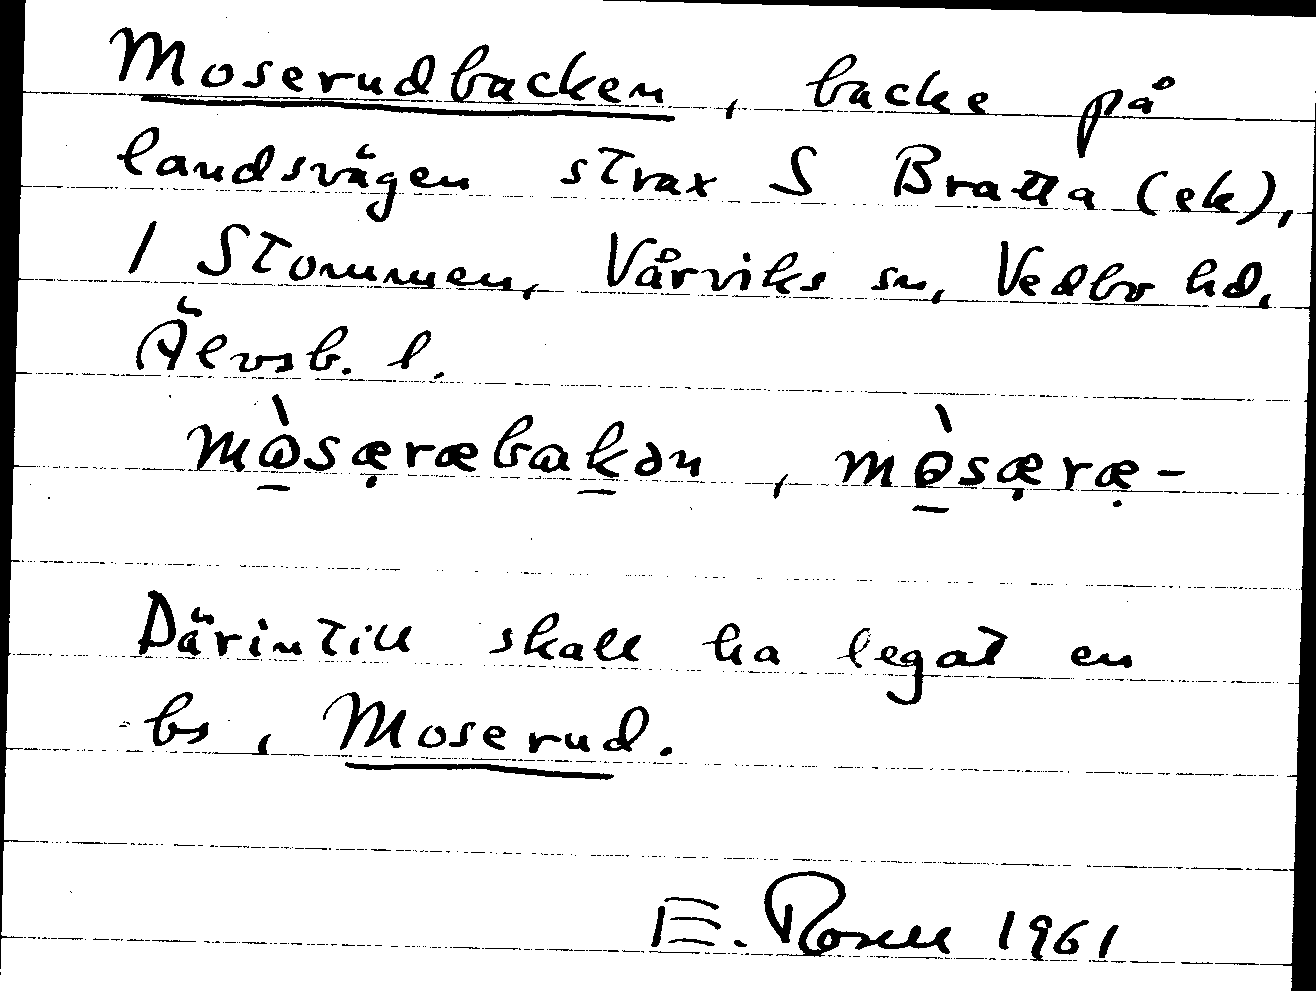 Moserudbacken, backe på
landsvägen strax S Bratta (ek),
1 Stommen, Vårviks sn, Vedbo hd.
Älvsb. l.
mɷ̲̀sæ̣ræbak̲ən, mɵ̲̀sæ̣ræ̣-
Därintill skall ha legat en
bs, Moserud.
E. Rosell 1961